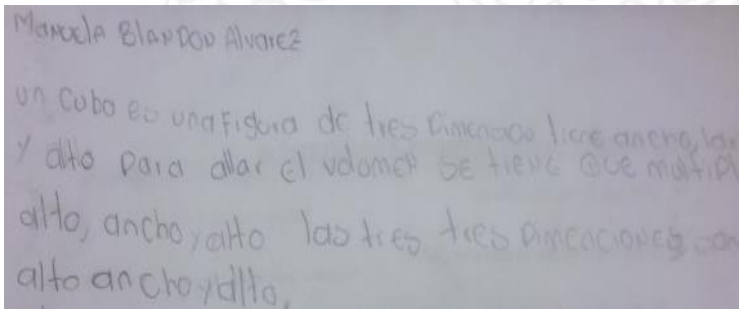 Manuela Blandon Alvarez
un cubo es una figura de tres dimencios tiene ancho, lar
y alto para allar el volomen se tiene que multipl
alto, ancho, y alto las tres tres dimenciones con
alto ancho y alto,